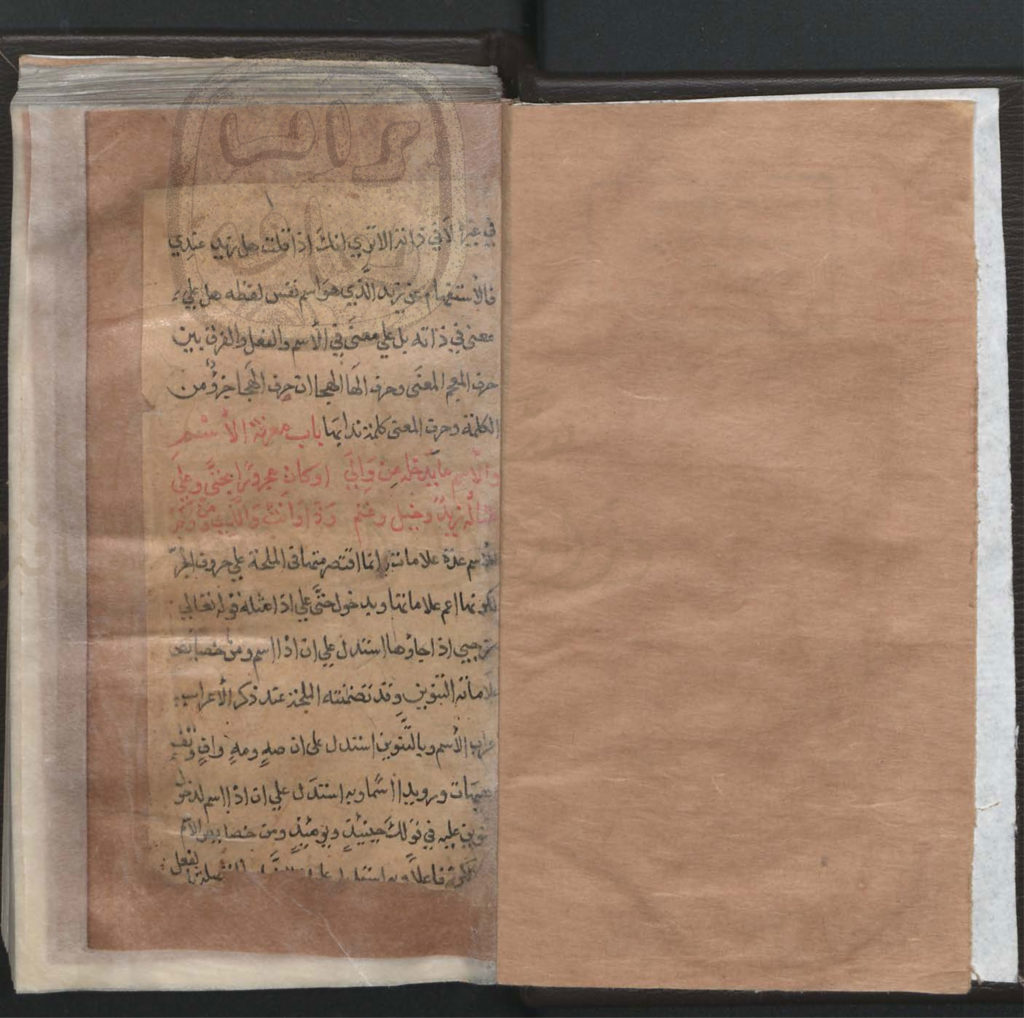 في غيره لا في ذاته الا تري انك اذا قلت هل زيد عندي
فالاستفهام عن زيد الذي هو اسم نفس لفظه هل علي
معنى في ذاته بل علي معنى في الاسم والفعل والفرق بين
حرف المعجم المعنى وحرف الهجا ان حرف الهجا جزؤ من
الكلمة وحرف المعنى كلمة بذاتها باب معرفة الأسم
والاسم ما يدخله من والي او كان مجرورا بحتى وعلي
مثاله زيد وخيل وغنم وذا وانت والذي ومن وكم
للاسم عدة علامات انما اقتصر منها في الملحة علي حروف الجر
لكونها اعم علاماتها وبدخول حتى علي اذا مثله قوله تعالي
حتي اذا جاؤها استدل علي ان اذا اسم ومن خصائص
علاماته التنوين وقد تضمنته الملحة عند ذكر الاعراب
اعراب الأسم وبالتنوين استدل علي ان صه ومه واف
هيهات ورويدا اسما وبه استدل علي ان اذا اسم لدخول
التنوين عليه في قولك حينئذ ويومئذ ومن خصايص الاسم
فاعلا وبه استدل